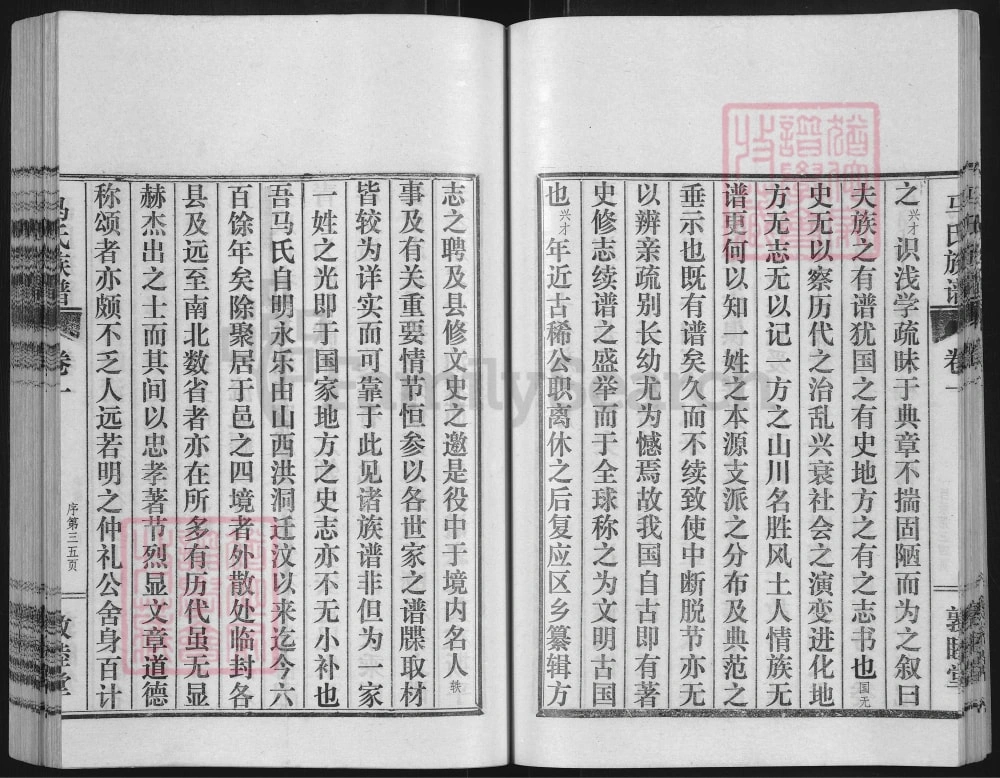 马氏族谱 卷一 敦睦堂
之兴才识浅学疏昧于典章不揣固陋而为之叙曰
夫族之有谱犹国之有史地方之有之志书也国无
史无以察历代之治乱兴衰社会之演变进化地
方无志无以记一方之山川名胜风土人情族无
谱更何以知一姓之本源支派之分布及典范之
垂示也既有谱矣久而不续致使中断脱节亦无
以辨亲疏别长幼尤为憾焉故我国自古即有著
史修志续谱之盛举而于全球称之为文明古国
也兴才年近古稀公职离休之后复应区乡纂辑方
志之聘及县修文史之邀是役中于境内名人轶
事及有关重要情节恒参以各世家之谱牒取材
皆较为详实而可靠于此见诸族谱非但为一家
一姓之光即于国家地方之史志亦不无小补也
吾马氏自明永乐由山西洪洞迁汶以来迄今六
百馀年矣除聚居于邑之四境者外散处临封各
县及远至南北数省者亦在所多有历代虽无显
赫杰出之士而其间以忠孝著节烈显文章道德
称颂者亦颇不乏人远若明之仲礼公舍身百计
马氏族谱 卷一 序第三五页 敦睦堂
FamilySearch